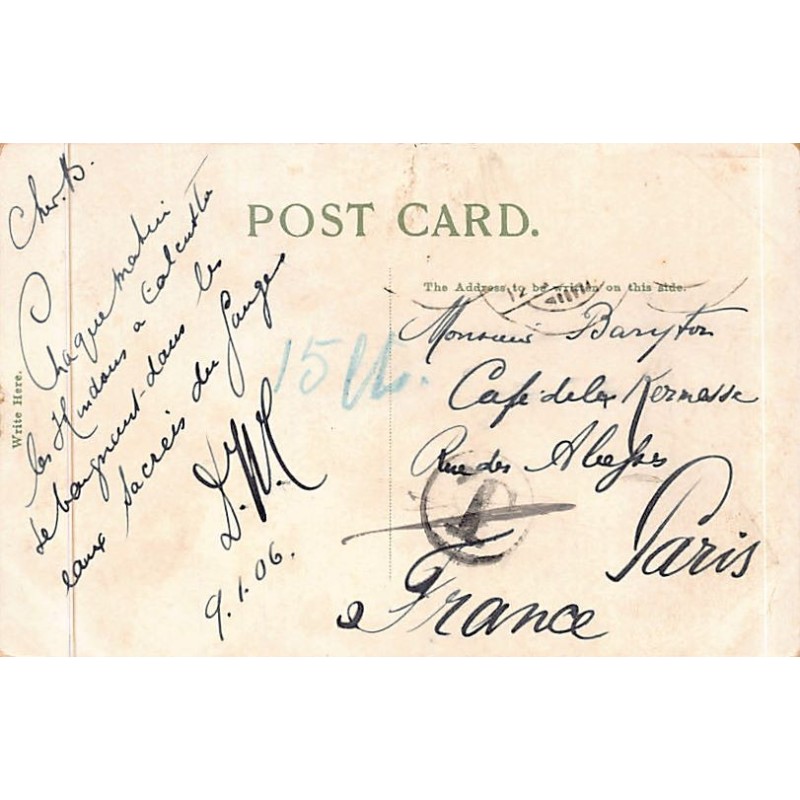 POST CARD.
The Address to be written on this side.
Write Here.
Cher B.
Chaque matin
les Hindous a Calcutta
se baignent dans les
eaux sacrées du Ganges
D.W.
9.1.06.
15
Monsieur Baryton
Café de la Kermesse
Rue des Abesses
Paris
France
T